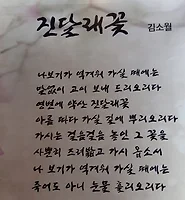 진달래꽃
김소월
나보기가 역겨워 가실 때에는
말없이 고이 보내 드리오리다
영변에 약산 진달래꽃
아름 따다 가실 길에 뿌리오리다
가시는 걸음걸음 놓인 그 꽃을
사뿐히 즈려밟고 가시 옵소서
나 보기가 역겨워 가실 때에는
죽어도 아니 눈물 흘리오리다